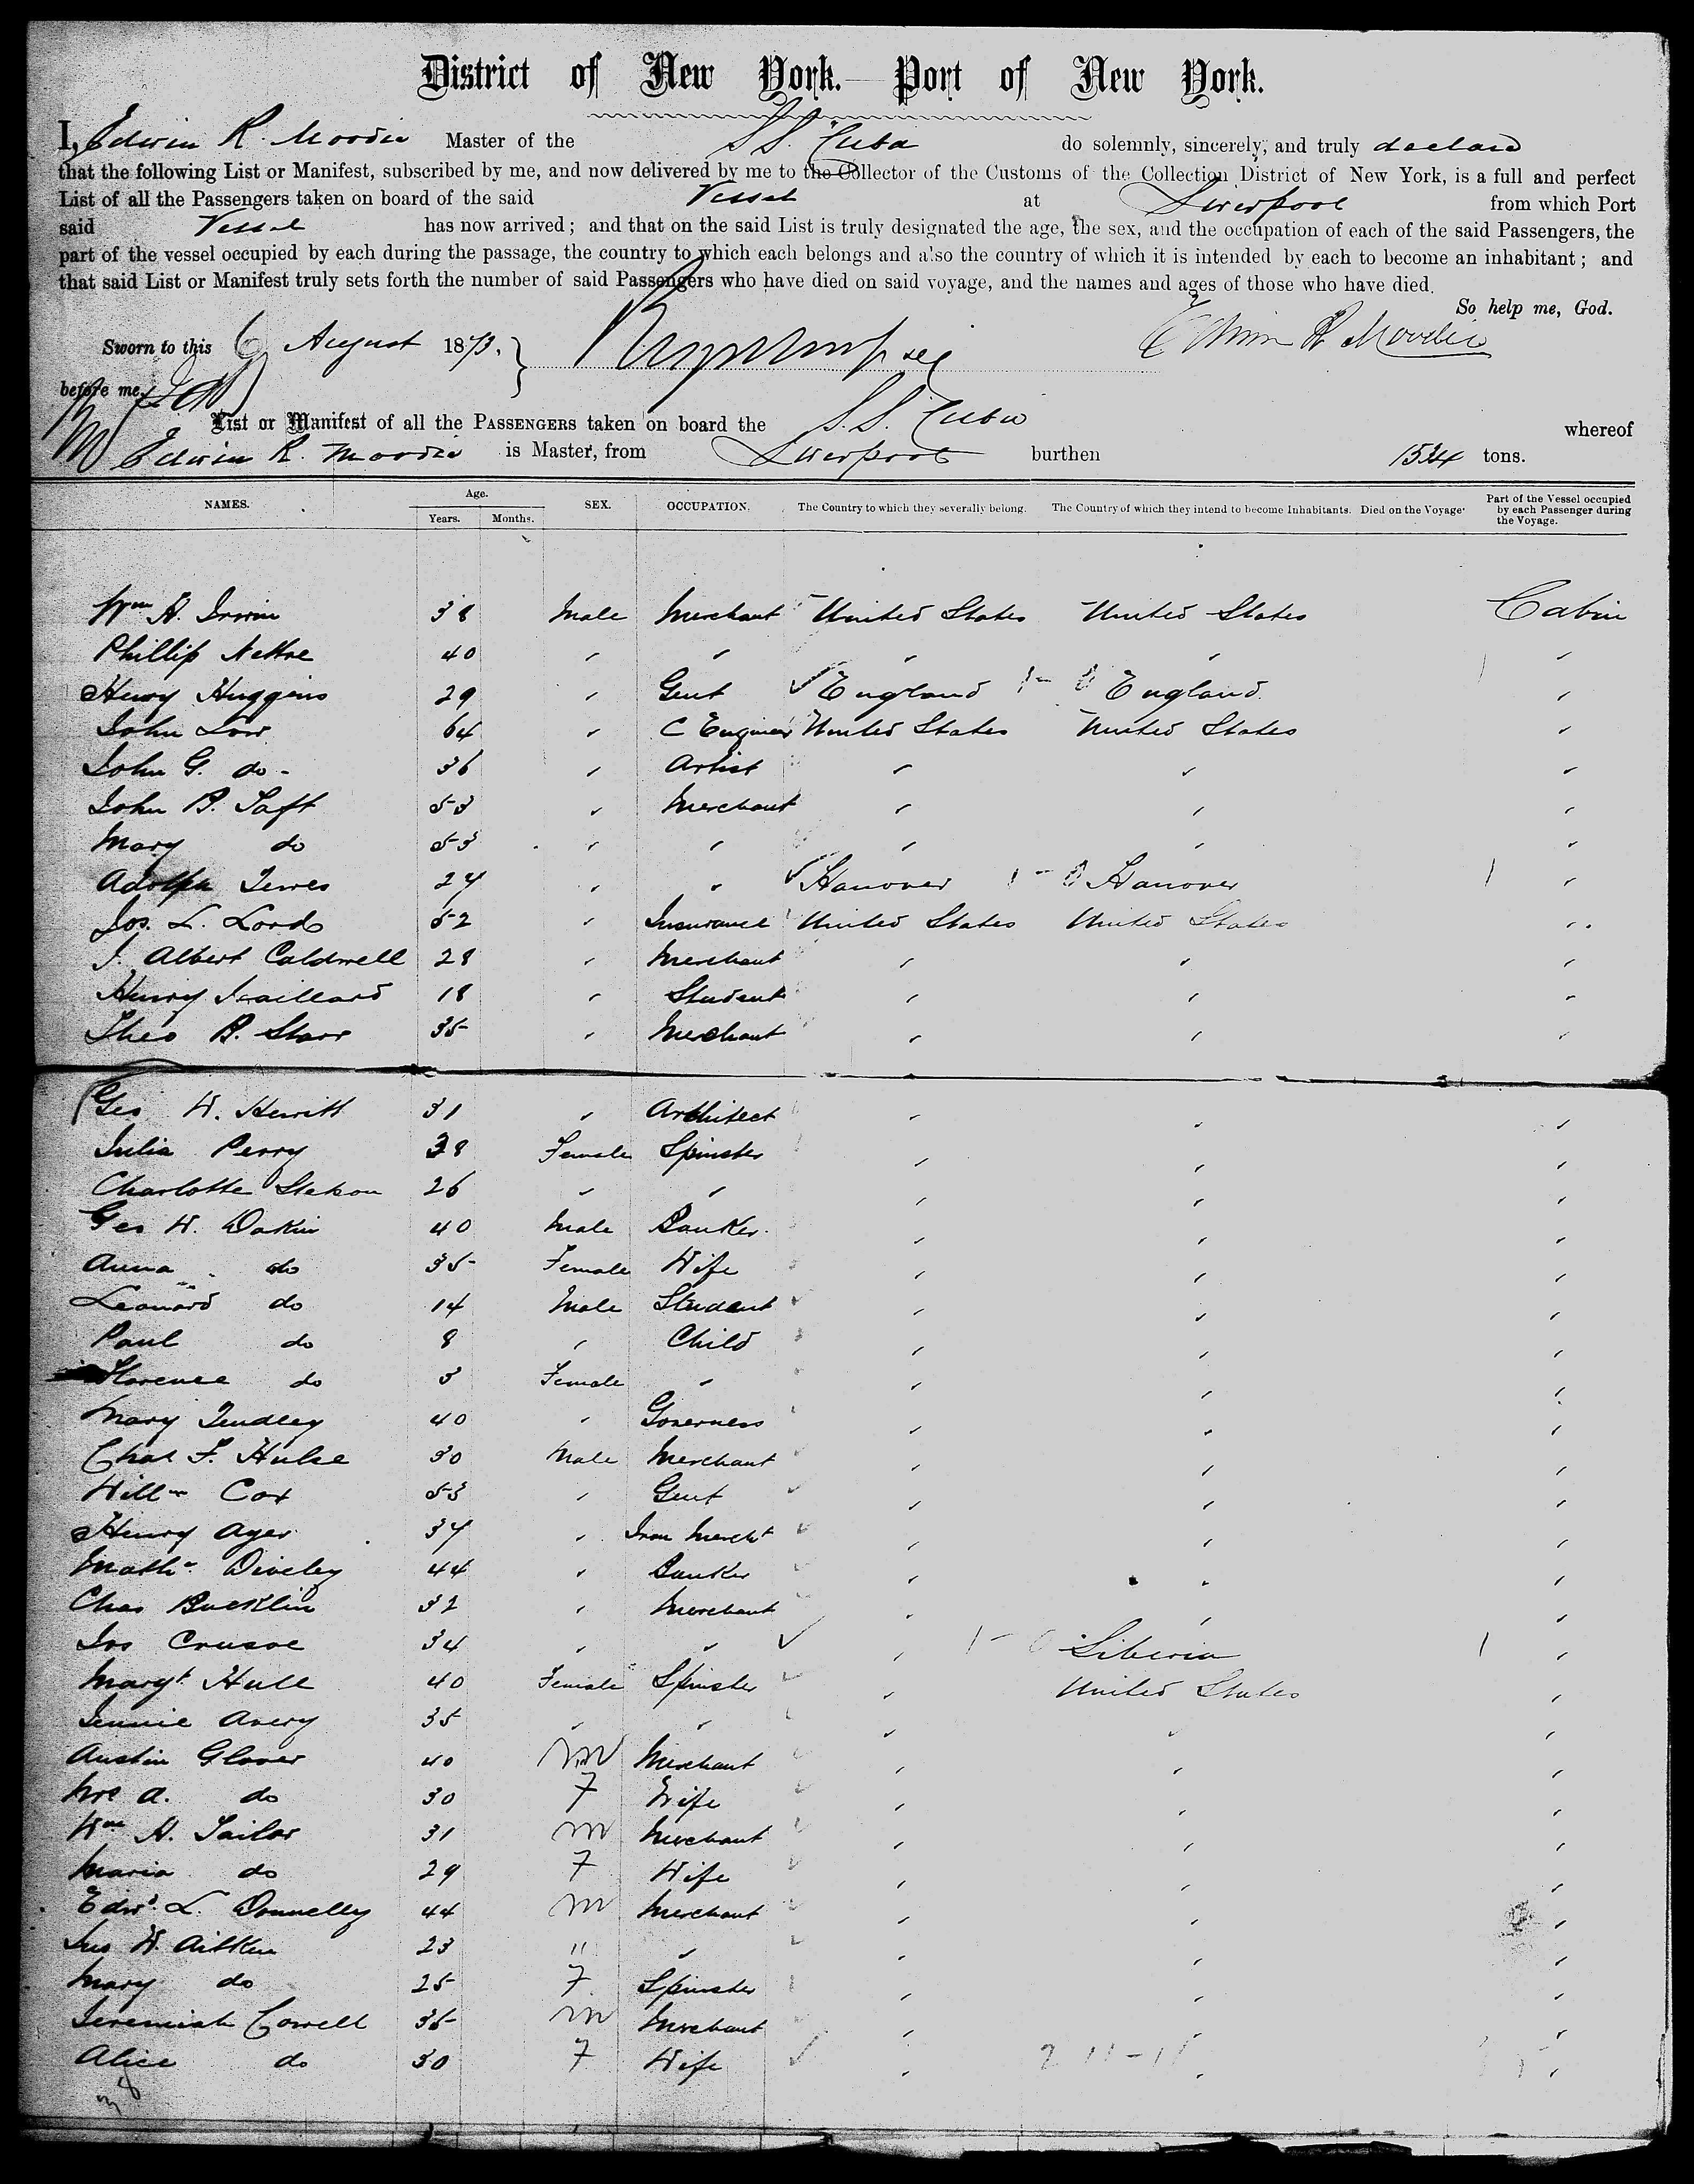 District of New York.— Port of New York.
I, Edwin R. Moodie Master of the S.S. Cuba do solemnly, sincerely, and truly declare
that the following List or Manifest, subscribed by me, and now delivered by me to the Collector of the Customs of the Collection District of New York, is a full and perfect
List of all the Passengers taken on board of the said Vessel at Liverpool from which Port
said Vessel has now arrived; and that on the said List is truly designated the age, the sex, and the occupation of each of the said Passengers, the
part of the vessel occupied by each during the passage, the country to which each belongs and also the country of which it is intended by each to become an inhabitant; and
that said List or Manifest truly sets forth the number of said Passengers who have died on said voyage, and the names and ages of those who have died.
So help me, God.
Sworn to this 6 August 1873. Edwin R Moodie
before me,
List or Manifest of all the PASSENGERS taken on board the S.S. Cuba whereof
Edwin R. Moodie is Master, from Liverpool burthen 1534 tons.
NAMES. Age. Years. Months. SEX. OCCUPATION. The Country to which they severally belong. The Country of which they intend to become Inhabitants. Died on the Voyage. Part of the Vessel occupied by each Passenger during the Voyage.
Wm H. Irwin 38 Male Merchant United States United States Cabin
Phillip 40 " " " " "
Henry Huggins 29 " Gent England England "
John Low 64 " C Engineer United States United States "
John G. do - 36 " Artist " " "
John B. Taft 53 " Merchant " " "
Mary do 53 " " " " "
Adolph Tewes 27 " " Hanover Hanover "
Jos. L. Lord 52 " Insurance United States United States "
J. Albert Caldwell 28 " Merchant " " "
Henry 18 " Student " " "
Theo B. Starr 35 " Merchant " " "
Geo W. Hewitt 31 " Architect " " "
Julia Perry 38 Female Spinster " " "
Charlotte Stetson 26 " " " " "
Geo W. Dakin 40 Male Banker " " "
Anna do 35 Female Wife " " "
Leonard do 14 Male Student " " "
Paul do 8 " Child " " "
Florence do 3 Female " " " "
Mary Tendley 40 " Governess " " "
Chas F. Hulse 30 Male Merchant " " "
Willm Cox 53 " Gent " " "
Henry Ayer 37 " Iron Mercht " " "
Mathw Diveley 44 " Banker " " "
Chas Bucklin 32 " Merchant " " "
Jos Crusoe 34 " " " Liberia "
Margt Hull 40 Female Spinster " United States "
Jennie Avery 35 " " " " "
Austin Glover 40 M Merchant " " "
Mrs A. do 30 F Wife " " "
Wm H. Tailor 31 M Merchant " " "
Maria do 29 F Wife " " "
Edwd. L. Donnelly 44 M Merchant " " "
Jno W. Aitken 23 " " " " "
Mary do 25 F Spinster " " "
Jeremiah Cowell 35 M Merchant " " "
Alice do 30 F Wife " " "
38